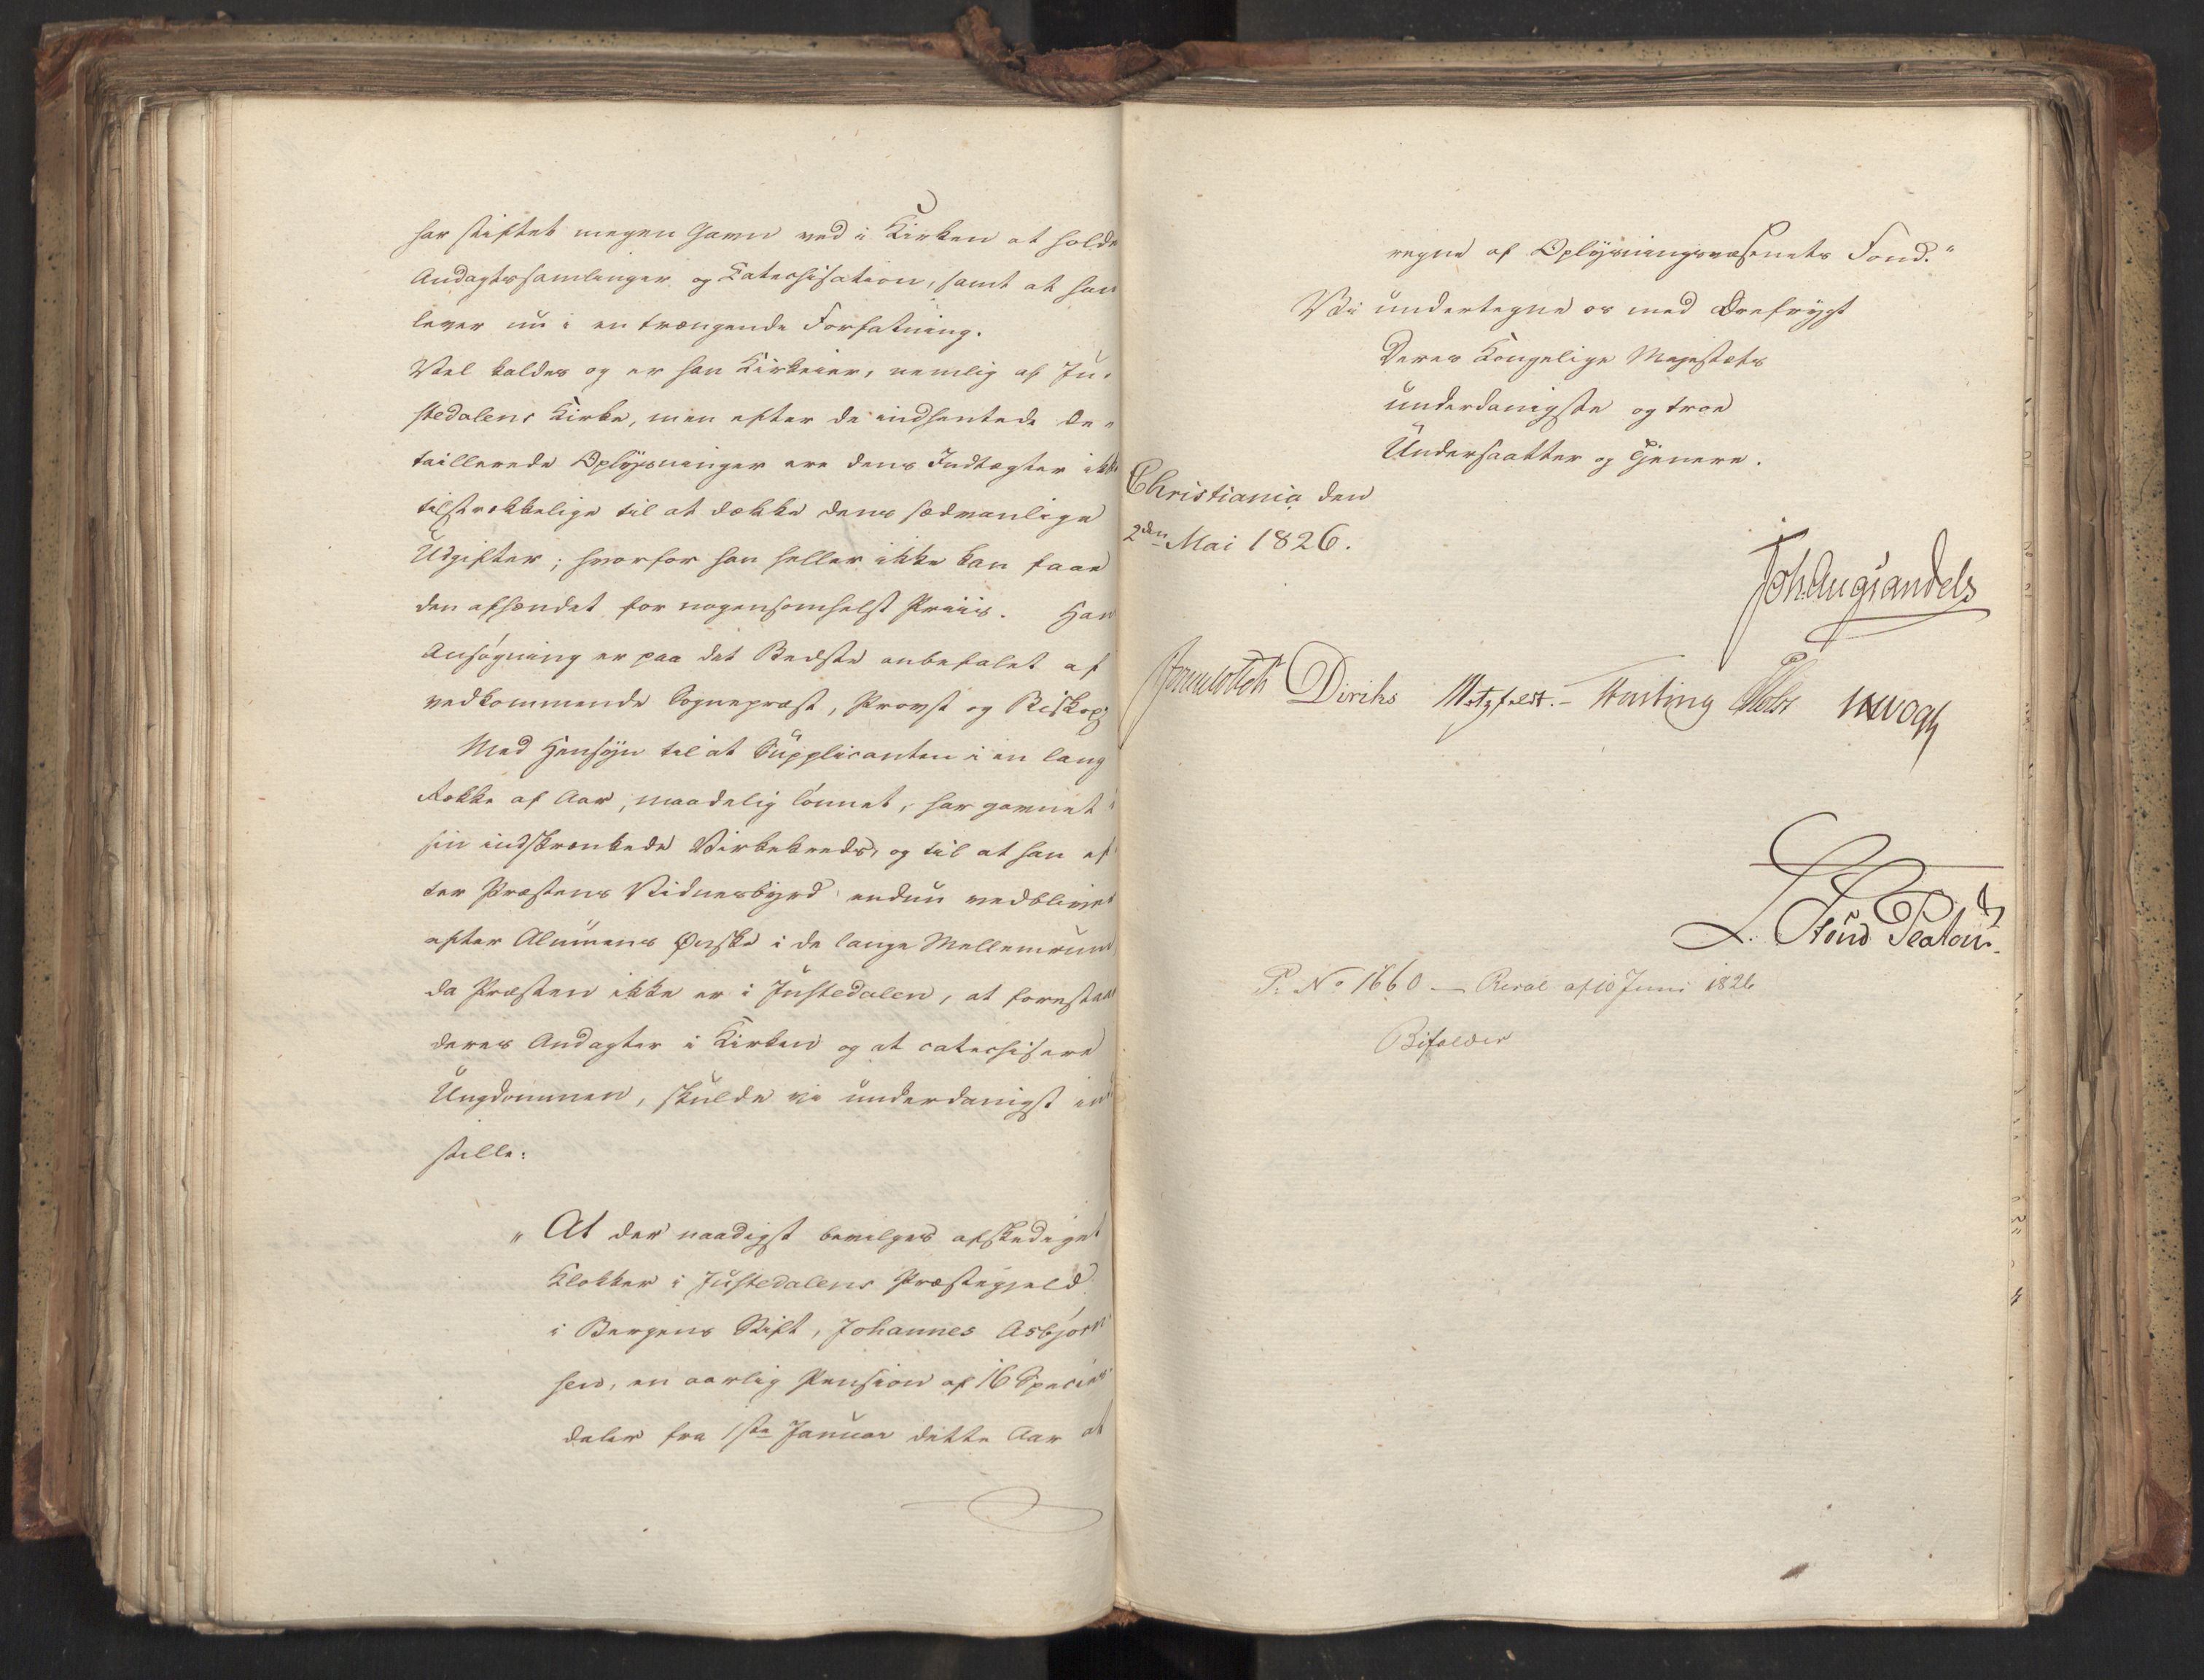 har stiftet megen Gavn ved i Kirken at holde
Andagtssamlinger og Catechisation, samt at han
lever nu i en trængende Forfatning.
Vel kaldes og er han Kirkeier, nemlig af Ju-
stedalens Kirke, men efter de indhentede de-
taillerede Oplysninger ere dens Indtægter ikke
tilstrækkelige til at dække dens sædvanlige
Udgifter; hvorfor han heller ikke kan faae
den afhændet for nogensomhelst Priis. Hans
Ansøgning er paa det Bedste anbefalet af
vedkommende Sognepræst, Provst og Biskop.
Med Hensyn til at Supplicanten i en lang
Række af Aar, maadelig lønnet, har gavnet i
sin indskrænkede Virkekreds, og til at han ef-
ter Præstens Vidnesbyrd endnu vedbliver
efter Almuens Ønske i de lange Mellemrum,
da Præsten ikke er i Justedalen, at forestaae
deres Andagter i Kirken og at catechisere
Ungdommen, skulde vi underdanigst ind-
stille:
„At der naadigst bevilges afskediget
Klokker i Justedalens Præstegjeld
i Bergens Stift, Johannes Asbjørn-
sen, en aarlig Pension af 16 Species-
daler fra 1ste Januar dette Aar at
regne af Oplysningsvæsenets Fond."
Vi undertegne os med Ærefrygt
Deres Kongelige Majestæts
underdanigste og troe
Undersaatter og Tjenere.
Christiania den
2den Mai 1826.
Joh Aug Sandels
Sommerfeldt Diriks Motzfeldt.- Fasting Holst JHVogt
L. Stoud Platou
P. No 1660 — Resol af 10 Juni 1826
Bifalder